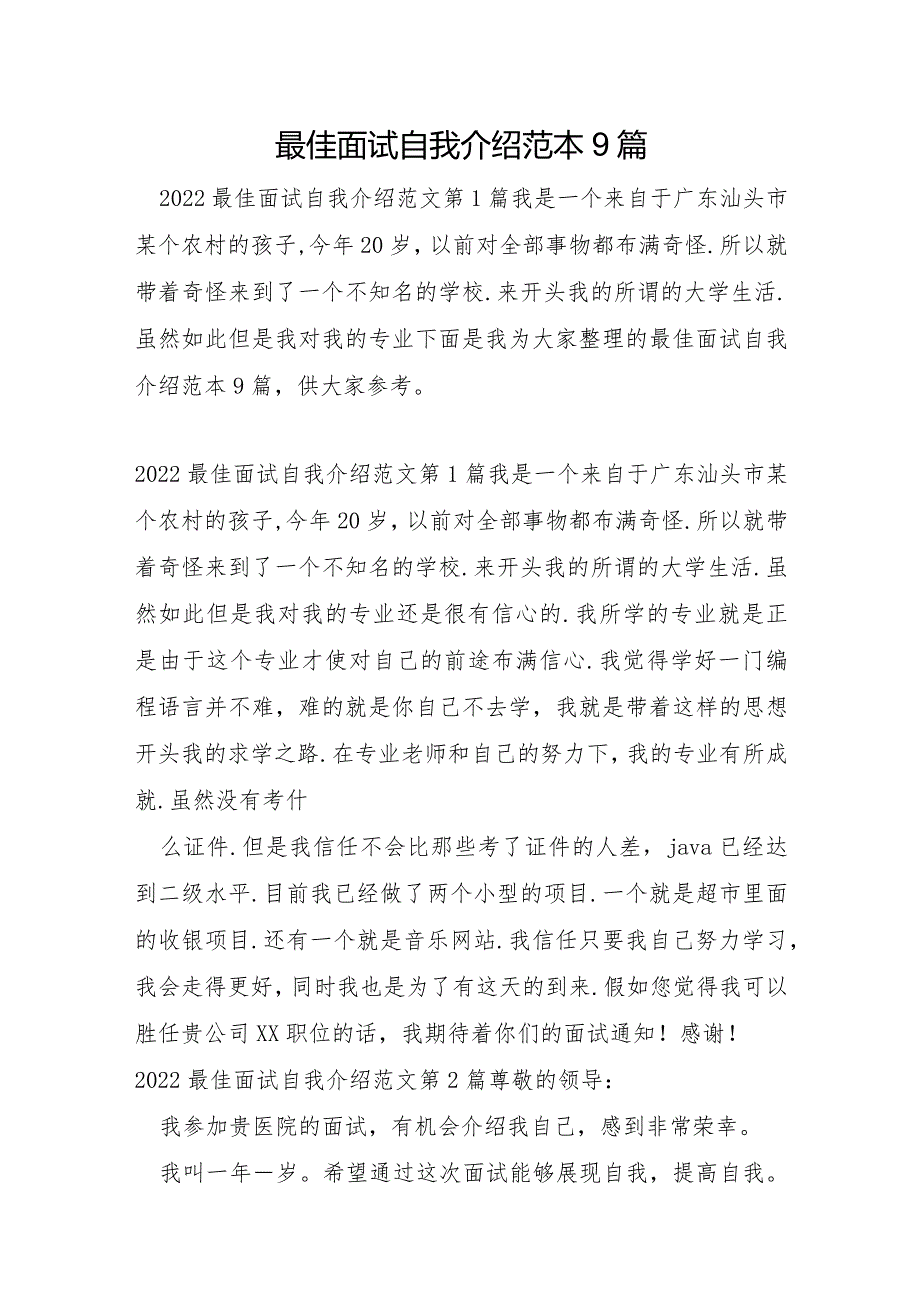 最佳面试自我介绍范本 9 篇
2022 最佳面试自我介绍范文第 1 篇我是一个来自于广东汕头市
某个农村的孩子,今年 20 岁，以前对全部事物都布满奇怪.所以就
带着奇怪来到了一个不知名的学校.来开头我的所谓的大学生活.
虽然如此但是我对我的专业下面是我为大家整理的最佳面试自我
介绍范本 9 篇，供大家参考。
2022 最佳面试自我介绍范文第 1 篇我是一个来自于广东汕头市某
个农村的孩子,今年 20 岁，以前对全部事物都布满奇怪.所以就带
着奇怪来到了一个不知名的学校.来开头我的所谓的大学生活.虽
然如此但是我对我的专业还是很有信心的.我所学的专业就是正
是由于这个专业才使对自己的前途布满信心.我觉得学好一门编
程语言并不难，难的就是你自己不去学，我就是带着这样的思想
开头我的求学之路.在专业老师和自己的努力下，我的专业有所成
就.虽然没有考什
么证件.但是我信任不会比那些考了证件的人差，java 已经达
到二级水平.目前我已经做了两个小型的项目.一个就是超市里面
的收银项目.还有一个就是音乐网站.我信任只要我自己努力学习，
我会走得更好，同时我也是为了有这天的到来.假如您觉得我可以
胜任贵公司 XX 职位的话，我期待着你们的面试通知！感谢！
2022 最佳面试自我介绍范文第 2 篇尊敬的领导：
我参加贵医院的面试，有机会介绍我自己，感到非常荣幸。
我叫一年－岁。希望通过这次面试能够展现自我，提高自我。